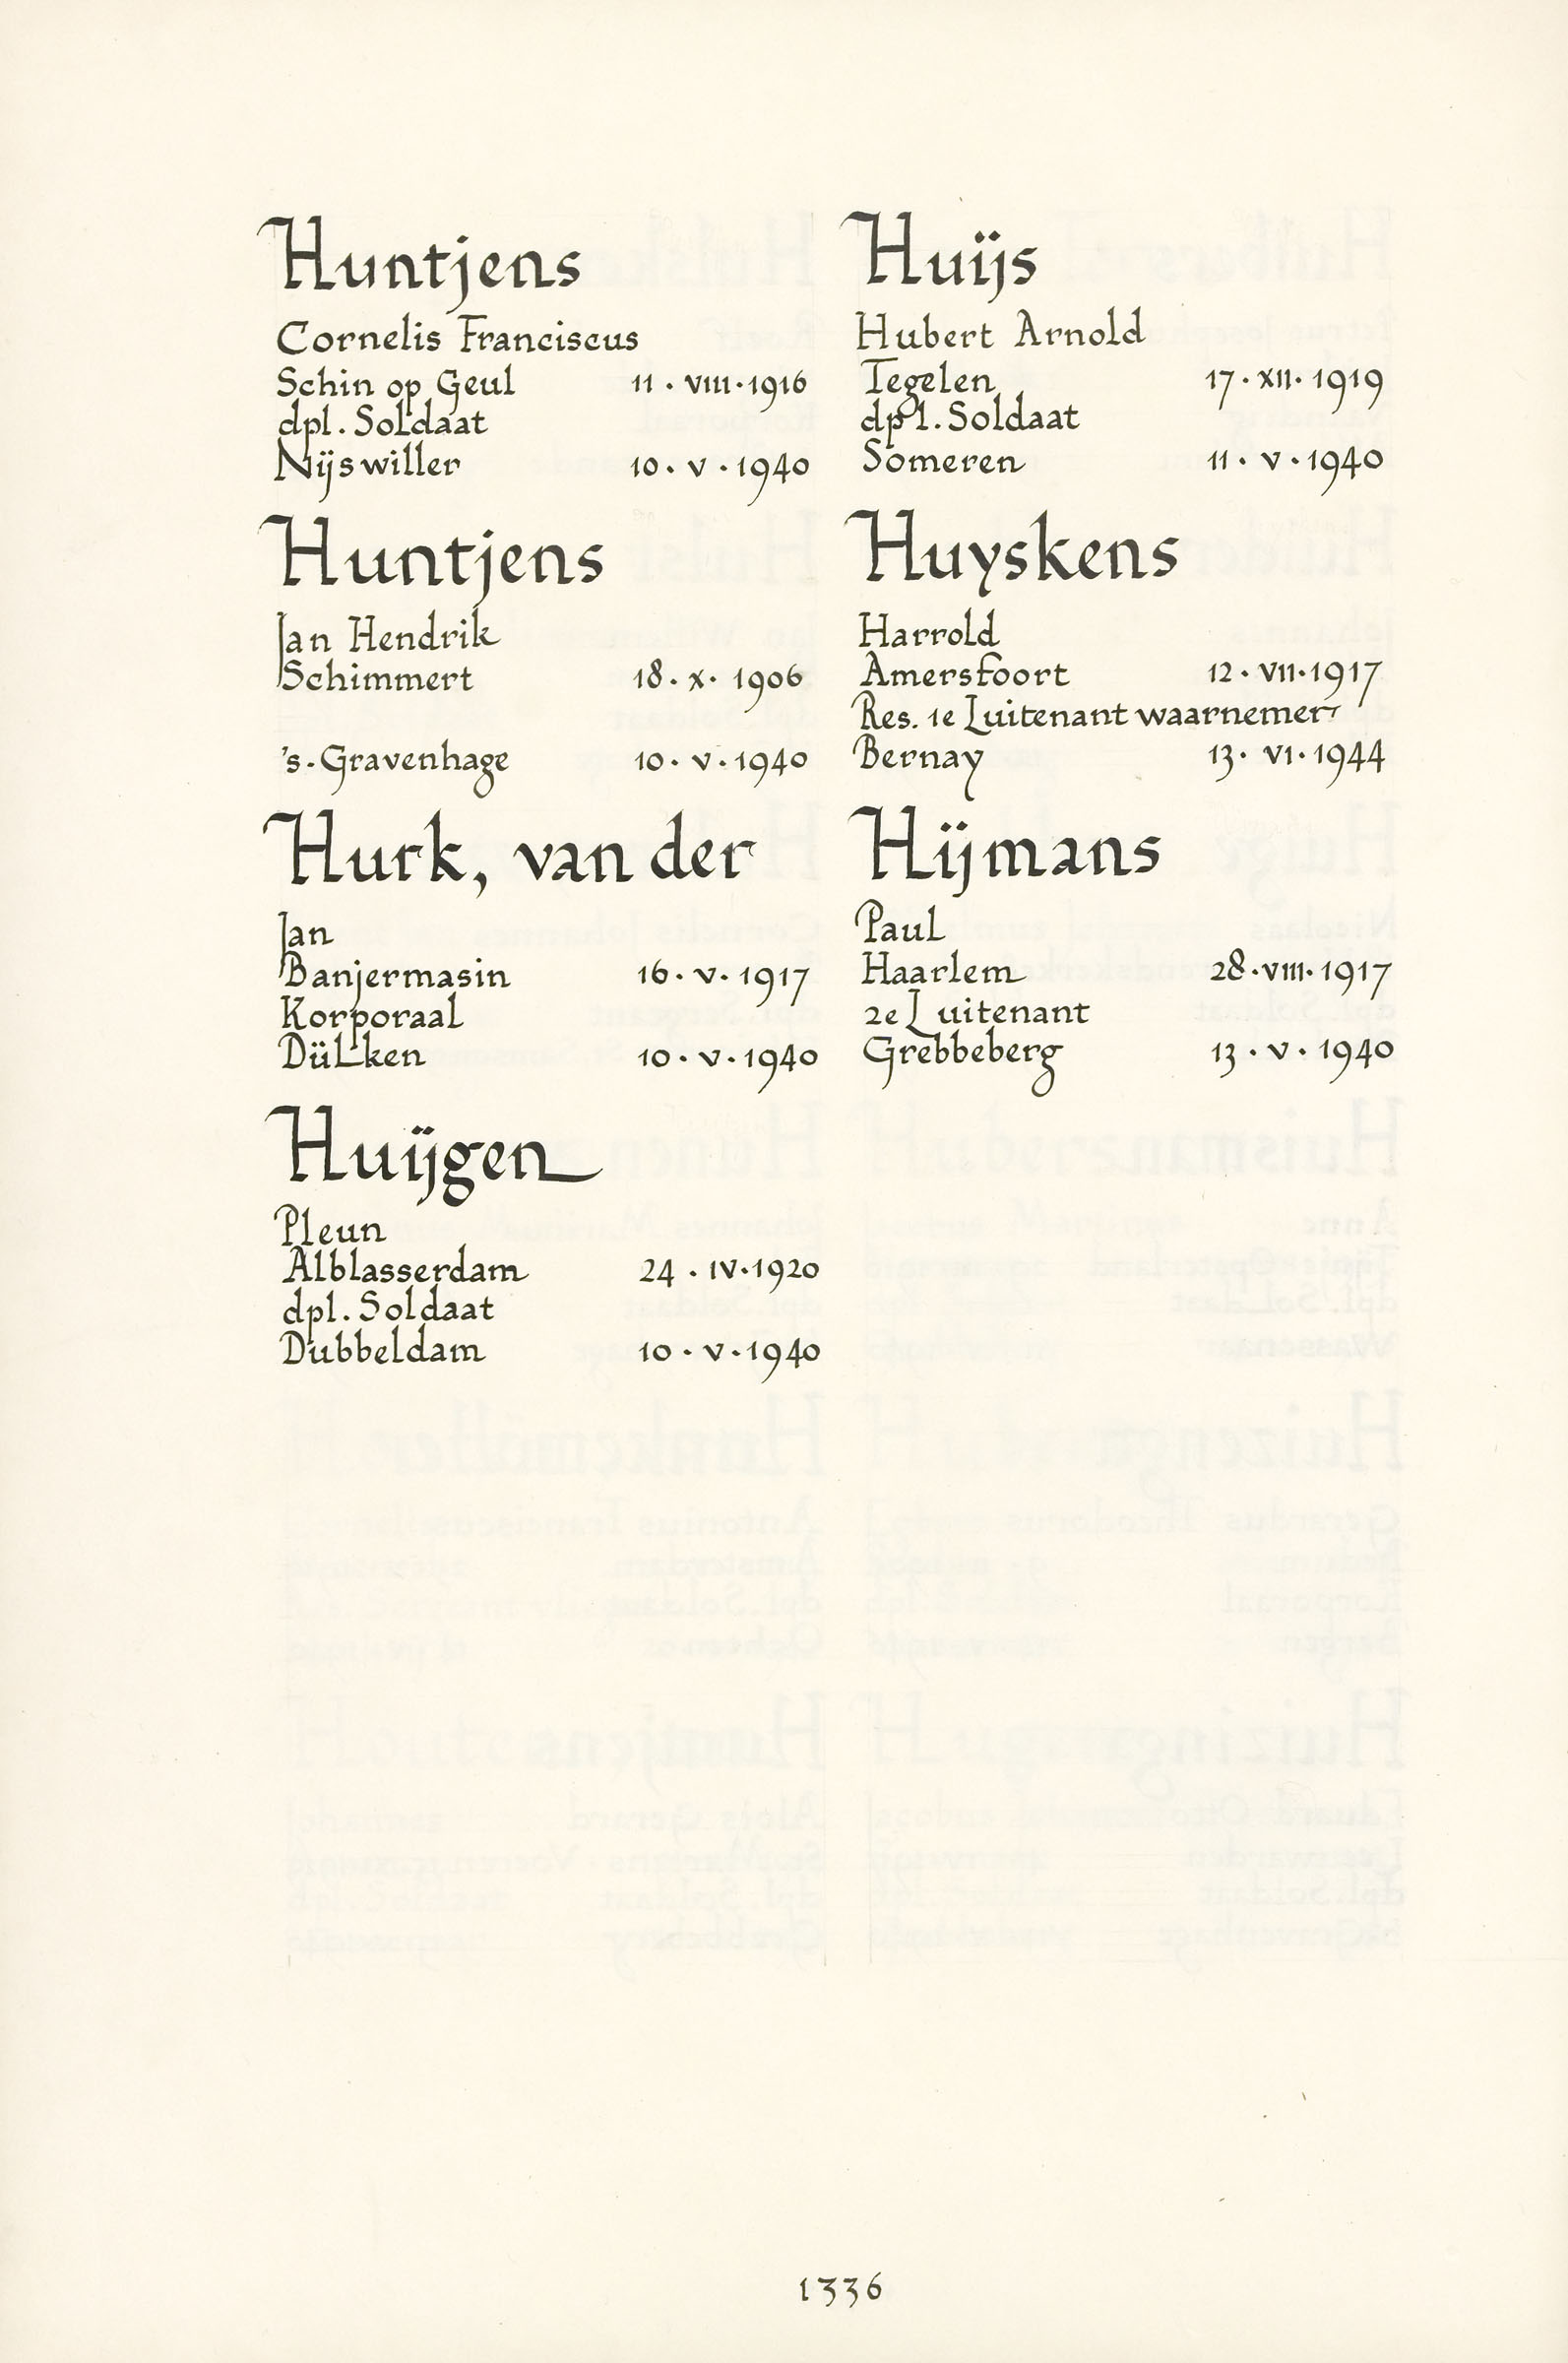 Huntjens
Cornelis Franciscus
Schin op Geul 11 · VIII · 1916
dpl. Soldaat
Nijswiller 10 · V · 1940
Huntjens
Jan Hendrik
Schimmert 18 · X · 1906
's-Gravenhage 10 · V · 1940
Hurk, van der
Jan
Banjermasin 16 · V · 1917
Korporaal
Dülken 10 · V · 1940
Huijgen
Pleun
Alblasserdam 24 · IV · 1920
dpl. Soldaat
Dubbeldam 10 · V · 1940
Huijs
Hubert Arnold
Tegelen 17 · XII · 1919
dpl. Soldaat
Someren 11 · V · 1940
Huyskens
Harrold
Amersfoort 12 · VII · 1917
Res. 1e Luitenant waarnemer
Bernay 13 · VI · 1944
Hijmans
Paul
Haarlem 28 · VIII · 1917
2e Luitenant
Grebbeberg 13 · V · 1940
1336